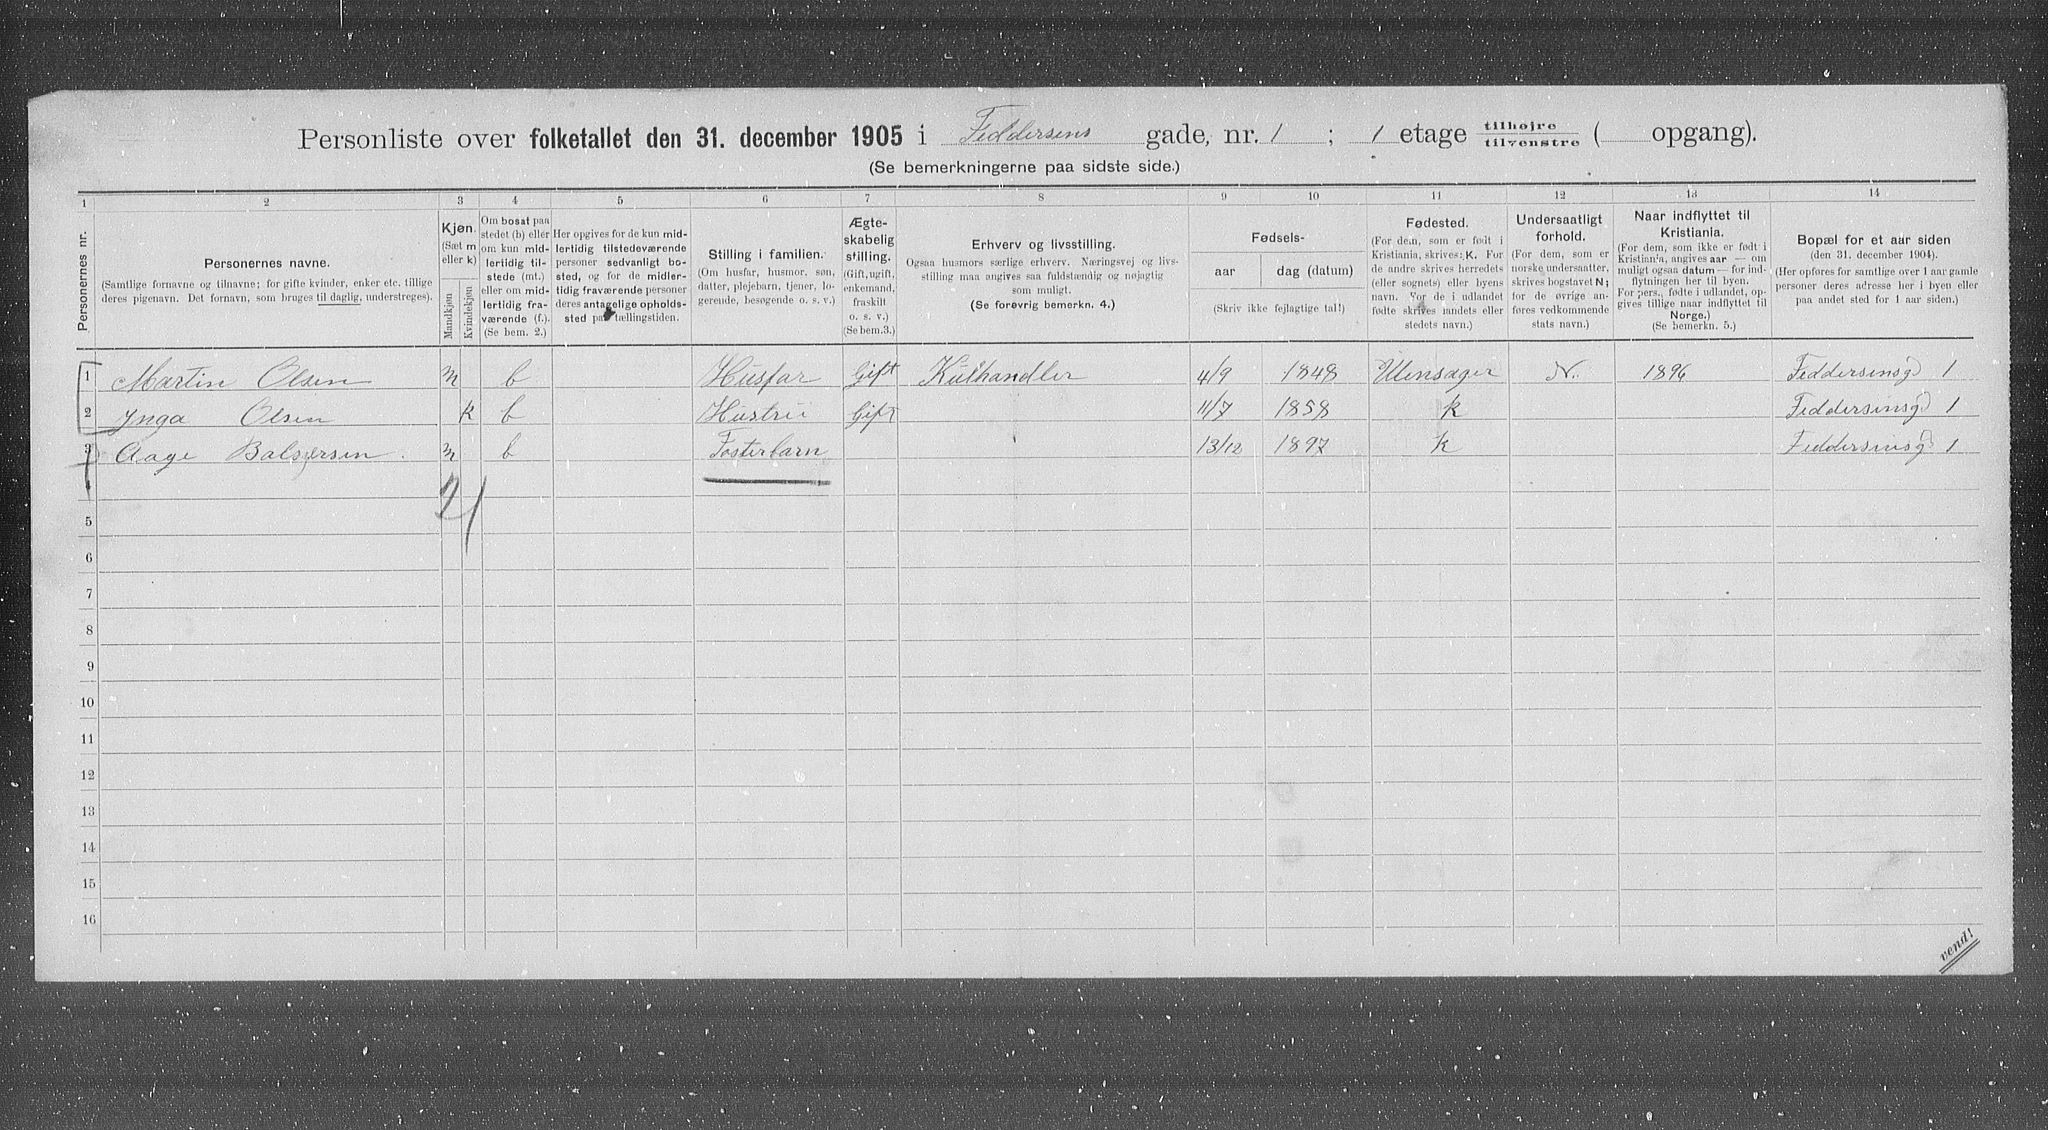 Personliste over folketallet den 31. december 1905 i Feddersens gade, nr. 1 ; 1 etage tilhøjre tilvenstre ( opgang).
(Se bemerkningerne paa sidste side.)
1 2 3 4 5 6 7 8 9 10 11 12 13 14
Personernes nr.
Personernes navne.
(Samtlige fornavne og tilnavne; for gifte kvinder, enker etc. tillige
deres pigenavn. Det fornavn, som bruges til daglig, understreges).
Kjøn.
(Sæt m
eller k)
Mandkjøn
Kvindekjøn
Om bosat paa
stedet (b) eller
om kun mid-
lertidig til-
stede (mt.)
eller om mid-
lertidig fra-
værende (f.).
(Se bem. 2.)
Her opgives for de kun mid-
lertidig tilstedeværende
personer sedvanligt bo-
sted, og for de midler-
tidig fraværende personer
deres antagelige opholds-
sted paa tællingstiden.
Stilling i familien.
(Om husfar, husmor, søn,
datter, plejebarn, tjener, lo-
gerende, besøgende o. s. v.)
Ægte-
skabelig
stilling.
(Gift, ugift,
enkemand,
fraskilt
o. s. v.)
(Se bem.3.)
Erhverv og livsstilling.
Ogsaa husmors særlige erhverv. Næringsvej og livs-
stilling maa angives saa fuldstændig og nøjagtig
som muligt.
(Se forøvrig bemerkn. 4.)
Fødsels-
aar dag (datum)
(Skriv ikke fejlagtige tal!)
Fødested.
(For dem, som er født i
Kristiania, skrives: K. For
de andre skrives herredets
(eller sognets) eller byens
navn. For de i udlandet
fødte skrives landets eller
stedets navn.)
Undersaatligt
forhold.
(For dem, som er
norske undersaatter,
skrives bogstavet N;
for de øvrige an-
føres vedkommende
stats navn.)
Naar indflyttet til
Kristiania.
(For dem, som ikke er født i
Kristiania, angives aar — om
muligt ogsaa datum — for ind-
flytningen her til byen.
For pers., fødte i udlandet, op-
gives tillige naar indflyttet til
Norge.)
(Se bemerkn. 5.)
Bopæl for et aar siden
(den 31. december 1904).
(Her opføres for samtlige over 1 aar gamle
personer deres adresse her i byen eller
paa andet sted for 1 aar siden.)
1 Martin Olsen m b Husfar Gift Kulhandler 4/9 1848 Ulensager N. 1896 Feddersensgd 1
2 Inga Olsen k b Hustru Gift 11/7 1858 k Feddersensgd 1
3 Aage Balsgersen. m b Fosterbarn 13/12 1897 k Feddersensgd 1
2/1
5
6
7
8
9
10
11
12
13
14
15
16
vend!